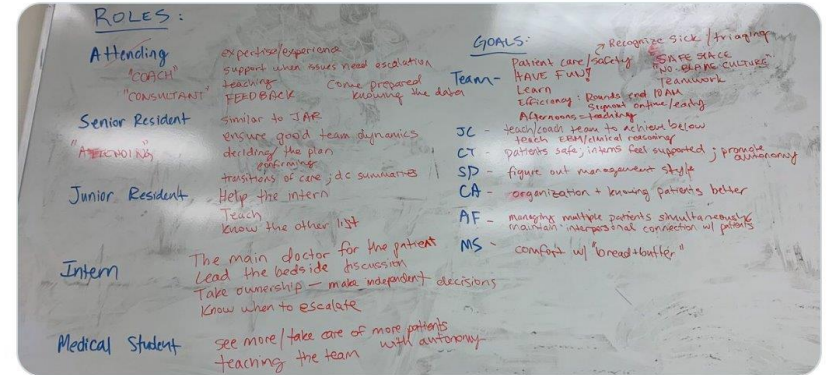 ROLES:
Attending
"COACH"
"CONSULTANT"
expertise/experience
support when issues need escalation
teaching
Come prepared
FEEDBACK
knowing the data
Senior Resident
"ATTENDING"
similar to JAR
ensure good team dynamics
deciding the plan
confirming
transitions of care, dc summaries
Junior Resident
Help the intern
Teach
know the other list
Intern
The main doctor for the patient
Lead the bedside discussion
Take ownership - make independent decisions
Know when to escalate
Medical Student
see more/take care of more patients
with autonomy
teaching the team
GOALS:
Recognize sick/triaging
Team-
Patient care/safety
SAFE SPACE
HAVE FUN!
"NO BLAME CULTURE"
Learn
Teamwork
Efficiency: Rounds end 10AM
Signout ontime/early
Afternoons = teaching
JC - teach/coach team to achieve below
teach EBM/clinical reasoning
CT - patients safe, interns feel supported; promote
autonomy
SP - figure out management style
CA - organization + knowing patients better
AF - managing multiple patients simultaneously
maintain interpersonal connection w/ patients
MS - comfort w/ "bread+butter"